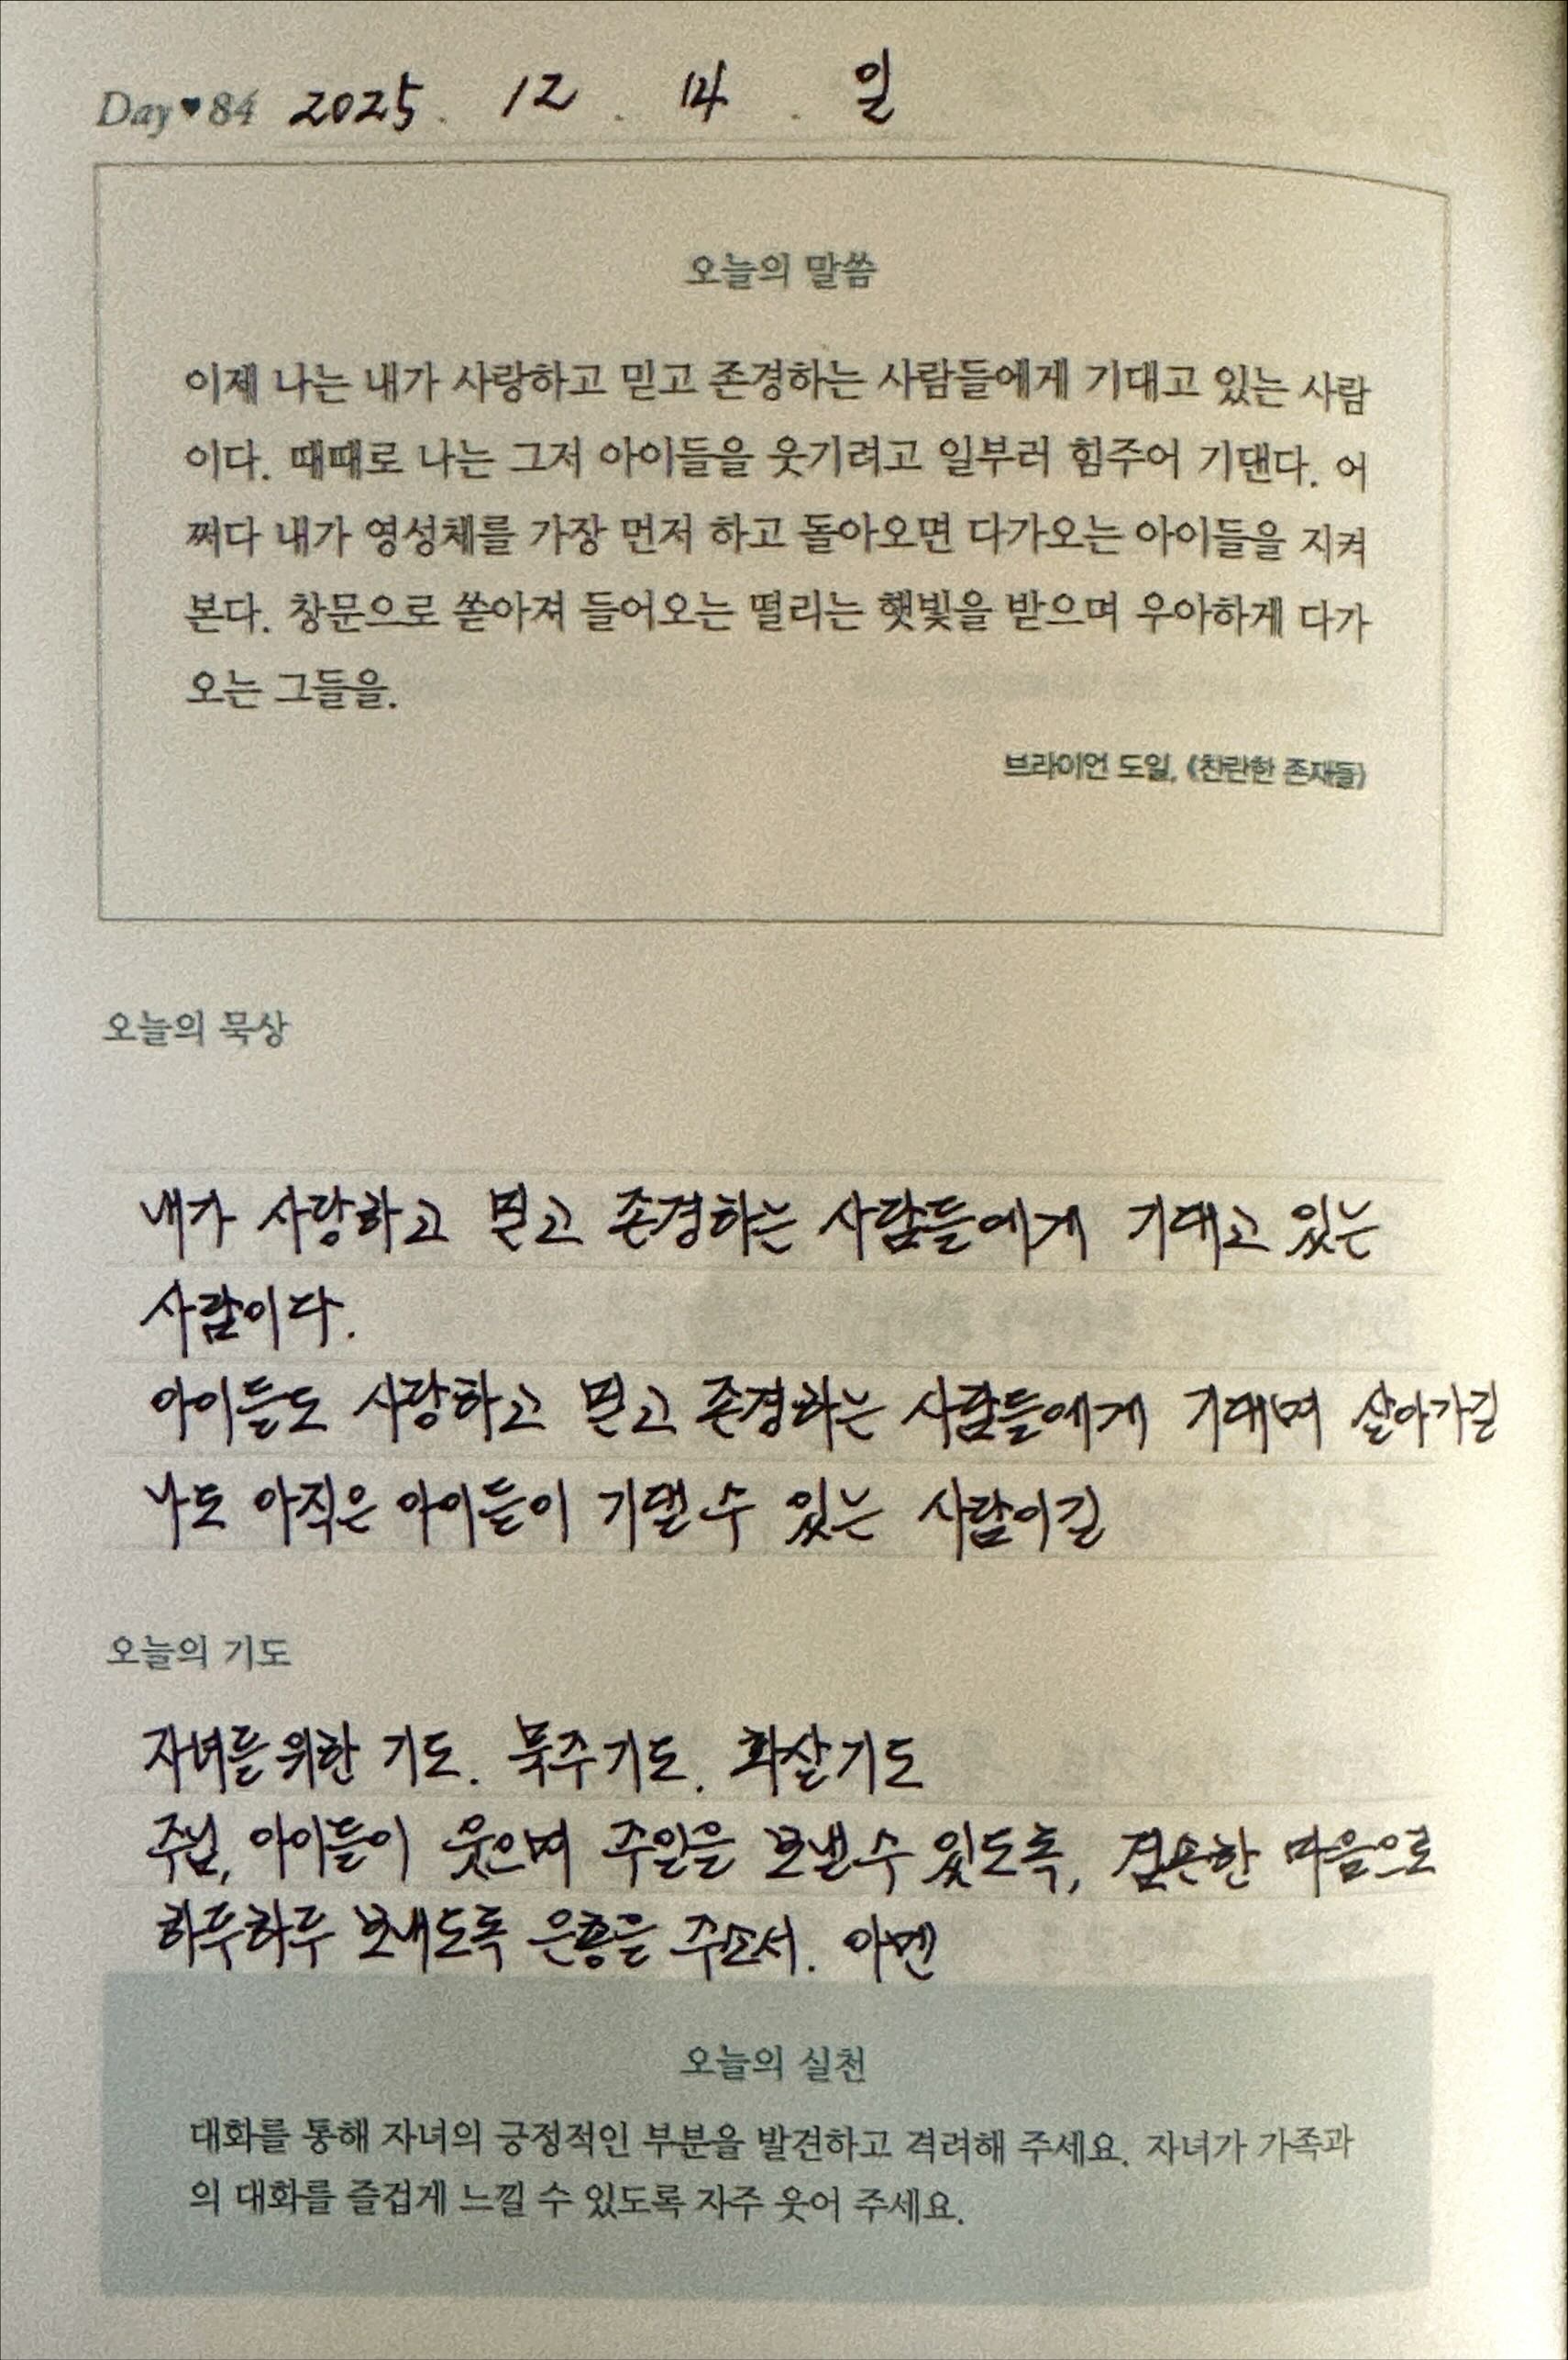 Day♥84 2025. 12. 14. 일
오늘의 말씀
이제 나는 내가 사랑하고 믿고 존경하는 사람들에게 기대고 있는 사람
이다. 때때로 나는 그저 아이들을 웃기려고 일부러 힘주어 기댄다. 어
쩌다 내가 영성체를 가장 먼저 하고 돌아오면 다가오는 아이들을 지켜
본다. 창문으로 쏟아져 들어오는 떨리는 햇빛을 받으며 우아하게 다가
오는 그들을.
브라이언 도일, 《찬란한 존재들》
오늘의 묵상
내가 사랑하고 믿고 존경하는 사람들에게 기대고 있는
사람이다.
아이들도 사랑하고 믿고 존경하는 사람들에게 기대며 살아가길
나도 아직은 아이들이 기댈 수 있는 사람이길
오늘의 기도
자녀를 위한 기도. 묵주기도. 화살기도
주님, 아이들이 웃으며 주일을 보낼 수 있도록, 겸손한 마음으로
하루하루 보내도록 은총을 주소서. 아멘
오늘의 실천
대화를 통해 자녀의 긍정적인 부분을 발견하고 격려해 주세요. 자녀가 가족과
의 대화를 즐겁게 느낄 수 있도록 자주 웃어 주세요.